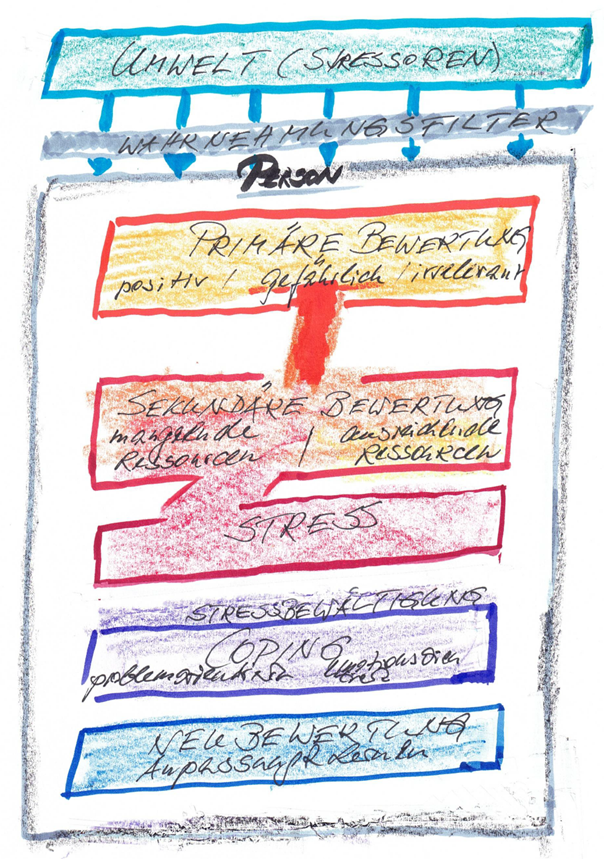 UMWELT (STRESSOREN)
WAHRNEHMUNGSFILTER
PERSON
PRIMÄRE BEWERTUNG
positiv / gefährlich / irrelevant
SEKUNDÄRE BEWERTUNG
mangelnde / ausreichende
Ressourcen RESSOURCEN
STRESS
STRESSBEWÄLTIGUNG
COPING
problemorientiert
NEUBEWERTUNG
Anpassung & Lernen